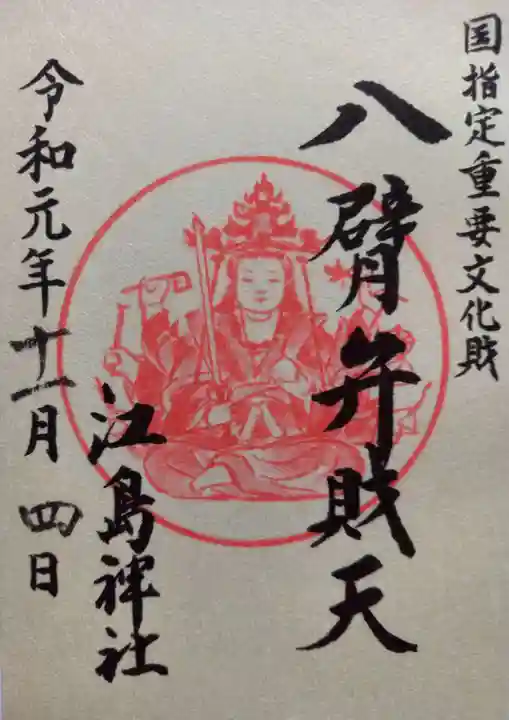 国指定重要文化財
八臂弁財天
江島神社
令和元年十一月 四日